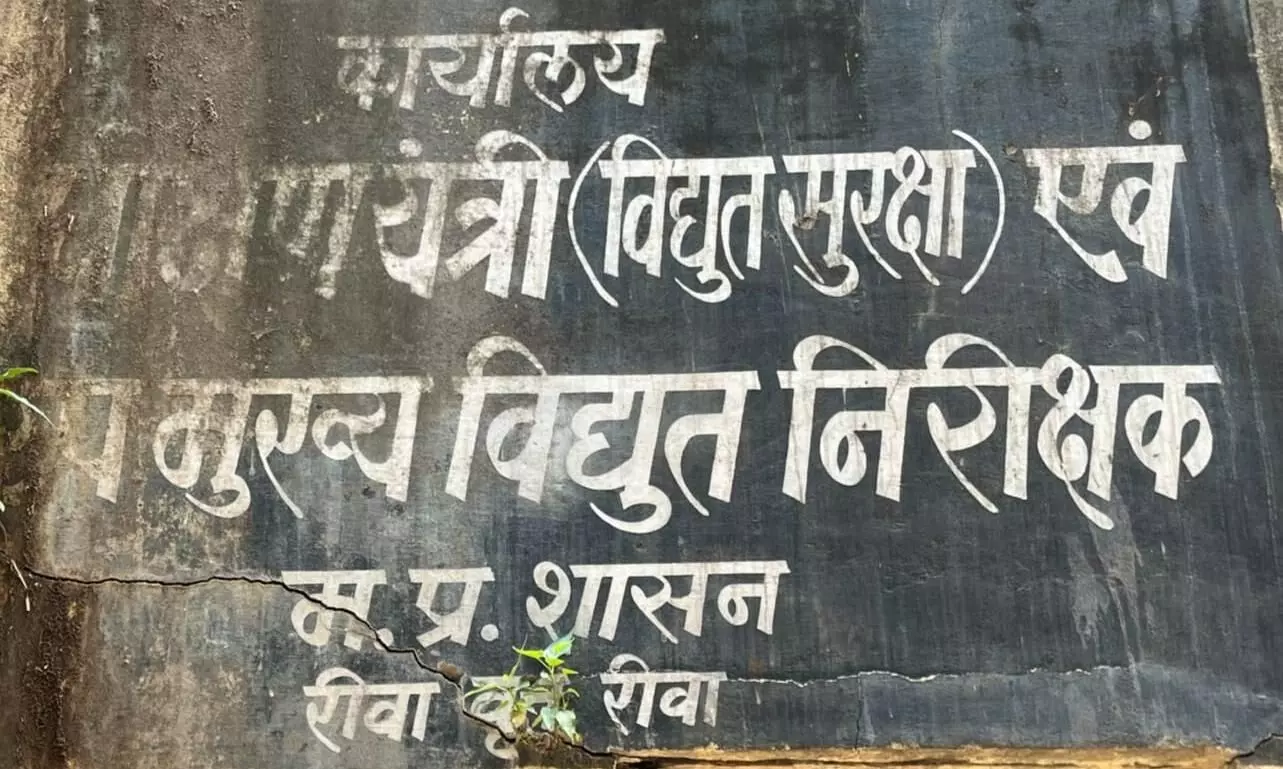 कार्यालय
यंत्री (विद्युत सुरक्षा) एवं
मुख्य विद्युत निरीक्षक
म.प्र. शासन
रीवा रीवा